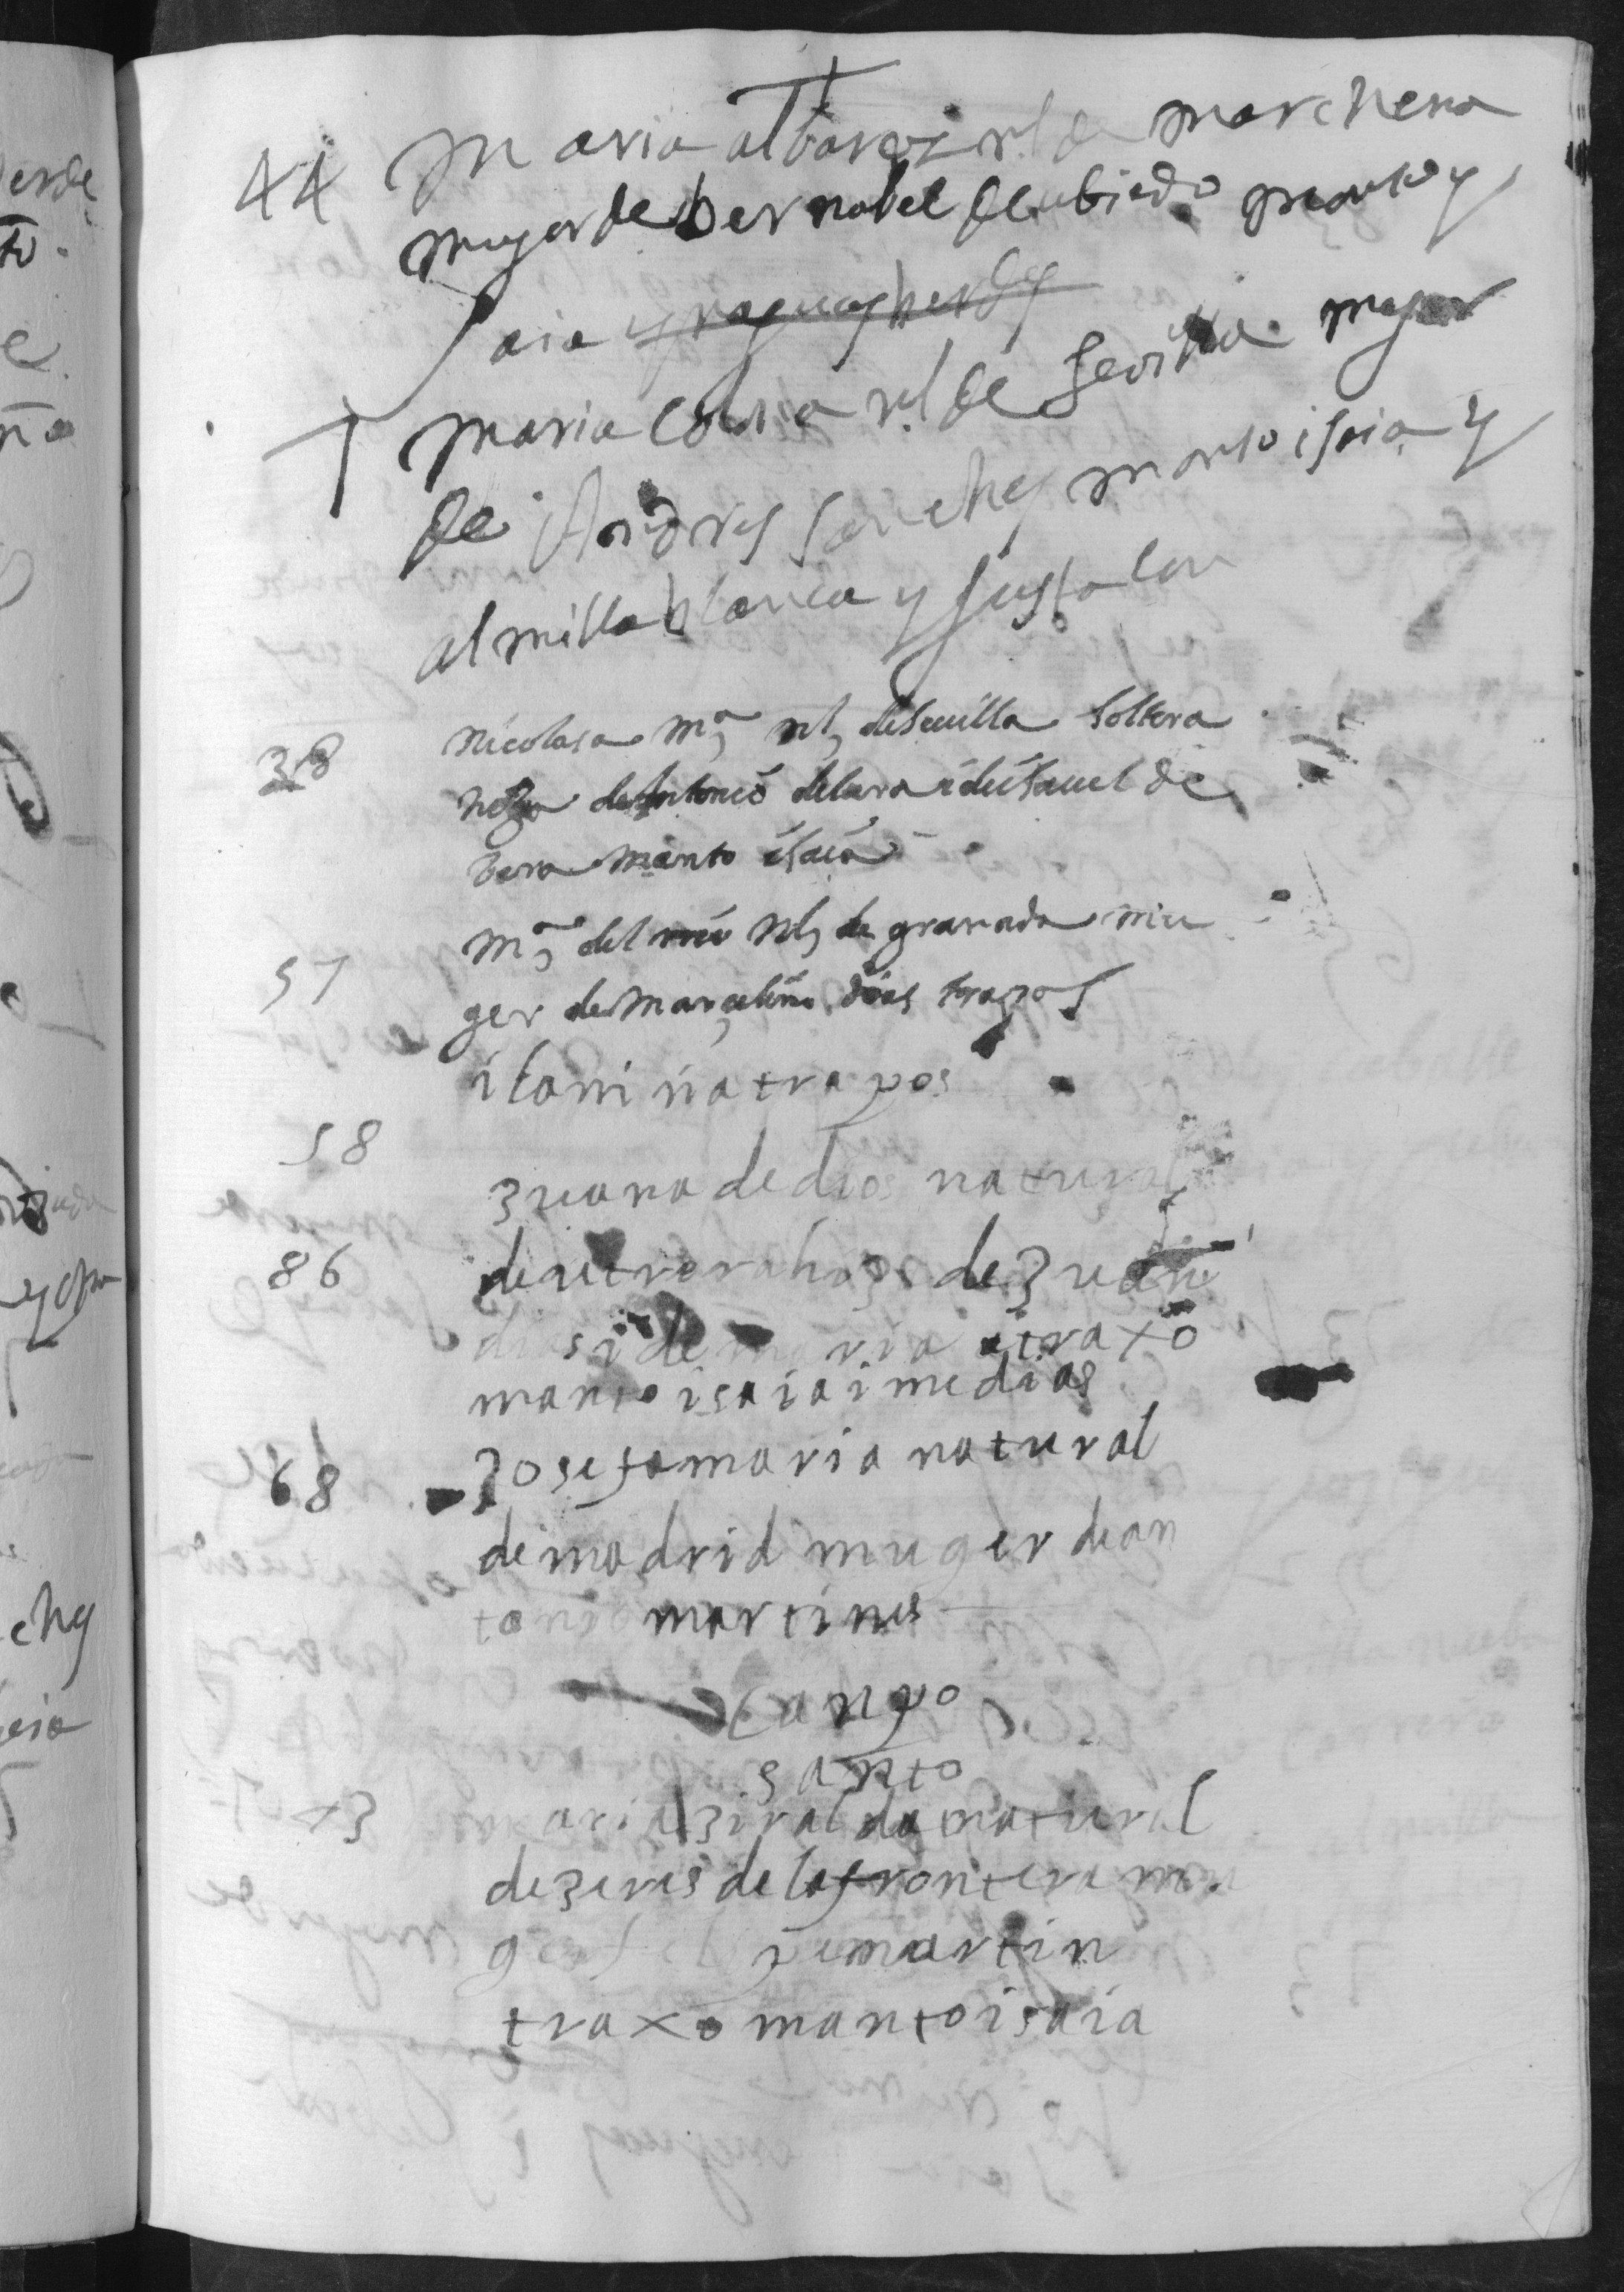 44 maria albares nl de marchena
muger de bernabel de ubiedo manto y
saia
maria nl de sevilla muger
de Andres sanches manto isaia y
almilla blanca y justa con
38 nicolasa mª nl de sevilla soltera
de Antonio de lara i de isauel de
bera manto isaia
57 mª del nl de granada mu
ger de Marcelino dias trapos
i la niña trapos
58
3uana de dios natural
86 de utrera de 3uan
dias i de maria traxo
manto isaia i medias
68 3osefa maria natural
de madrid muger de an
tonio martines
canpo
santo
x3 maria 3iralda natural
de 3eres de la frontera mu
ger martin
traxo manto isaia